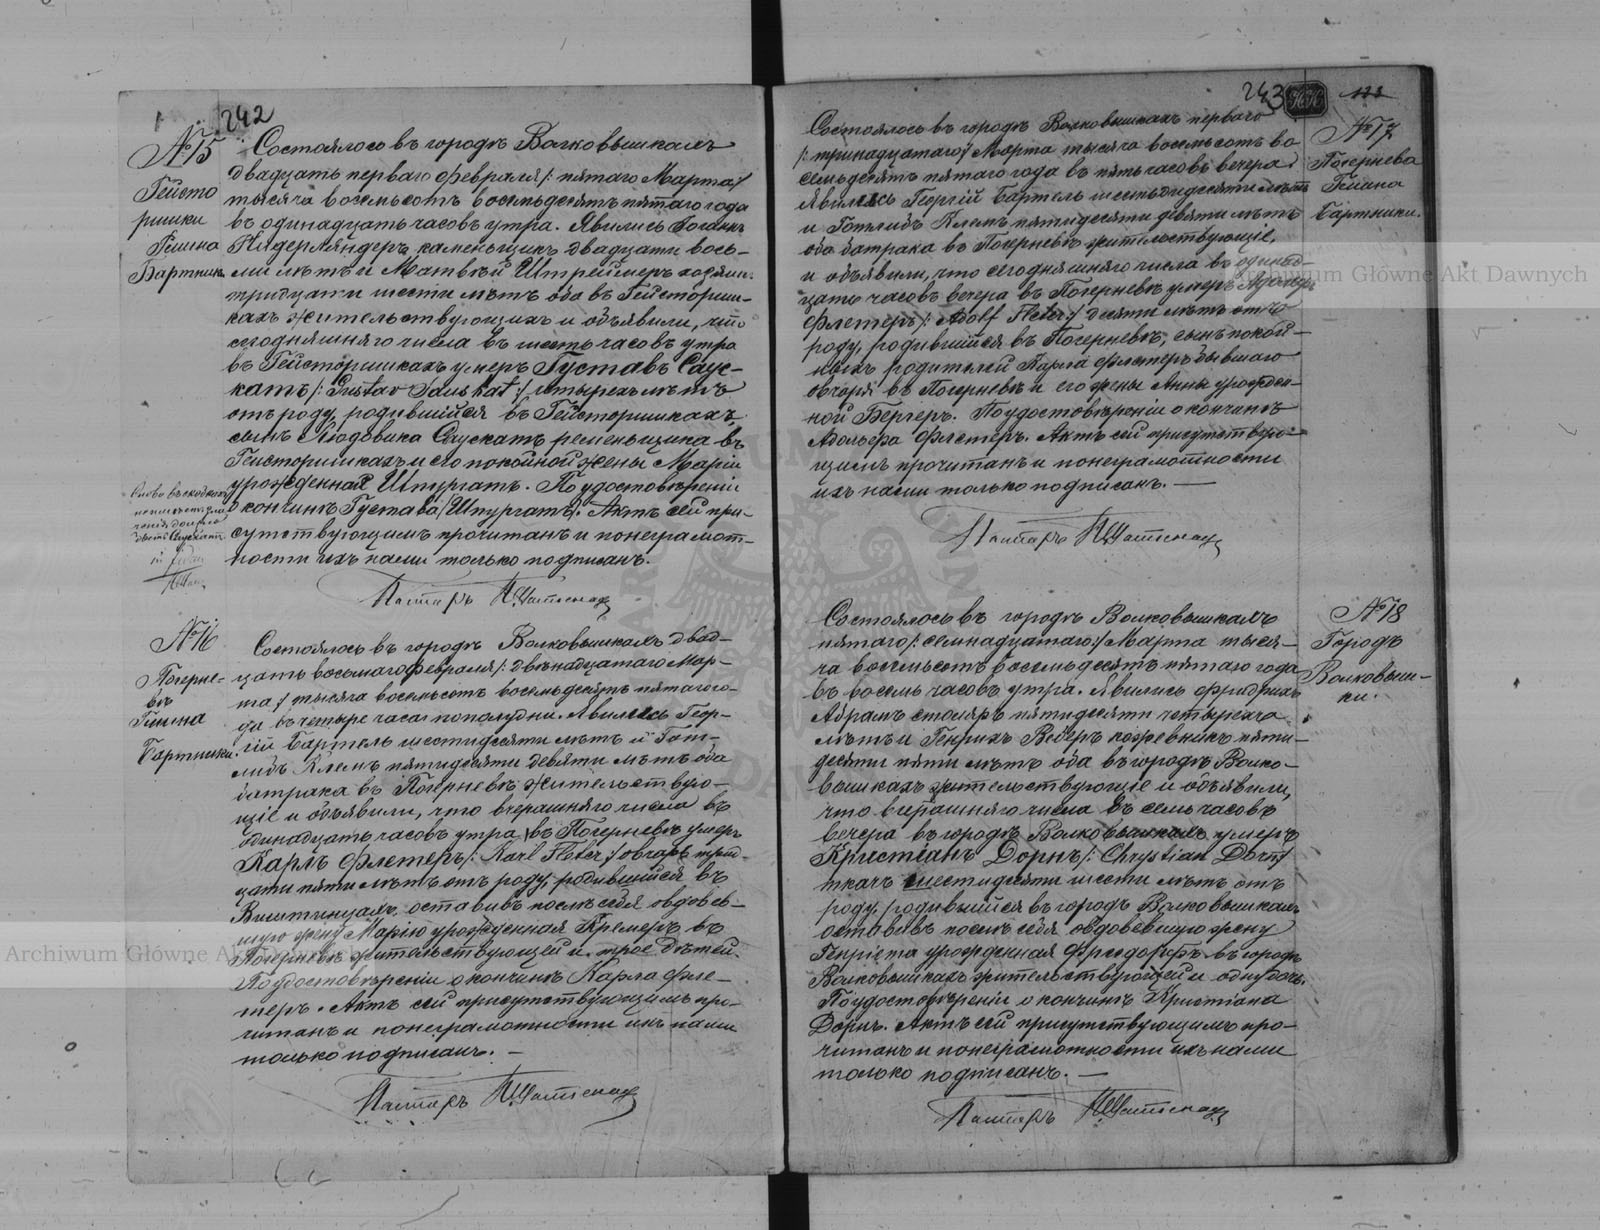 242
№ 15
Гейсто
ришки
Гмина
Бартники
Состоялось въ городѣ Волковышкахъ
двадцать перваго февраля /: пятаго Марта :/
тысяча восемьсотъ восемьдесятъ пятаго года
въ одинадцать часовъ утра. Явились Іоганнъ
Нидерлендеръ каменьщикъ двадцати вось-
ми лѣтъ и Матвѣй Штреймеръ хозяинъ
тридцати шести лѣтъ оба въ Гейсториш-
кахъ жительствующихъ и объявили, что
сегодняшняго числа въ шесть часовъ утра
въ Гейсторишкахъ умеръ Густавъ Саус-
катъ /: Gustav Sauskat :/ четырехъ лѣтъ
отъ роду, родившійся въ Гейсторишкахъ,
сынъ Людовика Саускатъ ременьщика въ
Гейсторишкахъ и его покойной жены Маріи
урожденная Штургатъ. По удостовѣреніи
о кончинѣ Густава /Штургатъ/. Актъ сей при-
сутствующимъ прочитанъ и понеграмот-
ности ихъ нами только подписанъ.
Слово въ скобкахъ
должно
Саускатъ
Пасторъ
№ 16
Погерне-
въ
Гмина
Бартники
Состоялось въ городѣ Волковышкахъ двад-
цать восьмаго февраля /: двѣнадцатаго Мар-
та :/ тысяча восемьсотъ восемьдесятъ пятаго го-
да въ четыре часа пополудни. Явились Геор-
гій Бартель шестидесяти лѣтъ и Гот-
либъ Клемъ пятидесяти девяти лѣтъ оба
батрака въ Погерневѣ жительствую-
щіе и объявили, что вчерашняго числа въ
одинадцать часовъ утра въ Погерневѣ умеръ
Карлъ Флетеръ /: Karl Fleter :/ овчаръ трид-
цати пяти лѣтъ отъ роду, родившійся въ
Виштинцахъ, оставивъ послѣ себя овдовѣв-
шую жену Марію урожденная Кремеръ въ
Погерневѣ жительствующей и трое дѣтей.
По удостовѣреніи о кончинѣ Карла Фле-
теръ. Актъ сей присутствующимъ про-
читанъ и понеграмотности ихъ нами
только подписанъ. —
Пасторъ
243
122
№ 17
Погернева
Гмина
Бартники.
Состоялось въ городѣ Волковышкахъ перваго
/: тринадцатаго :/ Марта тысяча восемьсотъ во
семьдесятъ пятаго года въ пять часовъ вечера
Явились Георгій Бартель шестидесяти лѣтъ
и Готлибъ Клемъ пятидесяти девяти лѣтъ
оба батрака въ Погерневѣ жительствующіе,
и объявили, что сегодняшняго числа въ одинад-
цать часовъ вечера въ Погерневѣ умеръ Адольфъ
Флетеръ /: Adolf Fleter :/ десяти лѣтъ отъ
роду, родившійся въ Погерневѣ, сынъ покой-
ныхъ родителей Карла Флетеръ бывшаго
овчаря въ Погерневѣ и его жены Анны урожден-
ной Бергеръ. По удостовѣреніи о кончинѣ
Адольфа Флетеръ. Актъ сей присутствую-
щимъ прочитанъ и понеграмотности
ихъ нами только подписанъ. —
Пасторъ
№ 18
Городъ
Волковыш-
ки.
Состоялось въ городѣ Волковышкахъ
пятаго /: семнадцатаго :/ Марта тыся-
ча восемьсотъ восемьдесятъ пятаго года
въ восемь часовъ утра. Явились Фридрихъ
Абрамъ столяръ пятидесяти четырехъ
лѣтъ и Генрихъ Веберъ пяти-
десяти пяти лѣтъ оба въ городѣ Волко-
вышкахъ жительствующіе и объявили,
что вчерашняго числа въ семь часовъ
вечера въ городѣ Волковышкахъ умеръ
Кристіанъ Дорнъ /: Chrystian Dorn :/
ткачъ шестидесяти шести лѣтъ отъ
роду, родившійся въ городѣ Волковышкахъ
оставивъ послѣ себя овдовѣвшую жену
Генріета урожденная Фрисдорфъ въ городѣ
Волковышкахъ жительствующей и одну дочь.
По удостовѣреніи о кончинѣ Кристіана
Дорнъ. Актъ сей присутствующимъ про-
читанъ и понеграмотности ихъ нами
только подписанъ. —
Пасторъ
Archiwum Główne Akt Dawnych
Archiwum Główne A